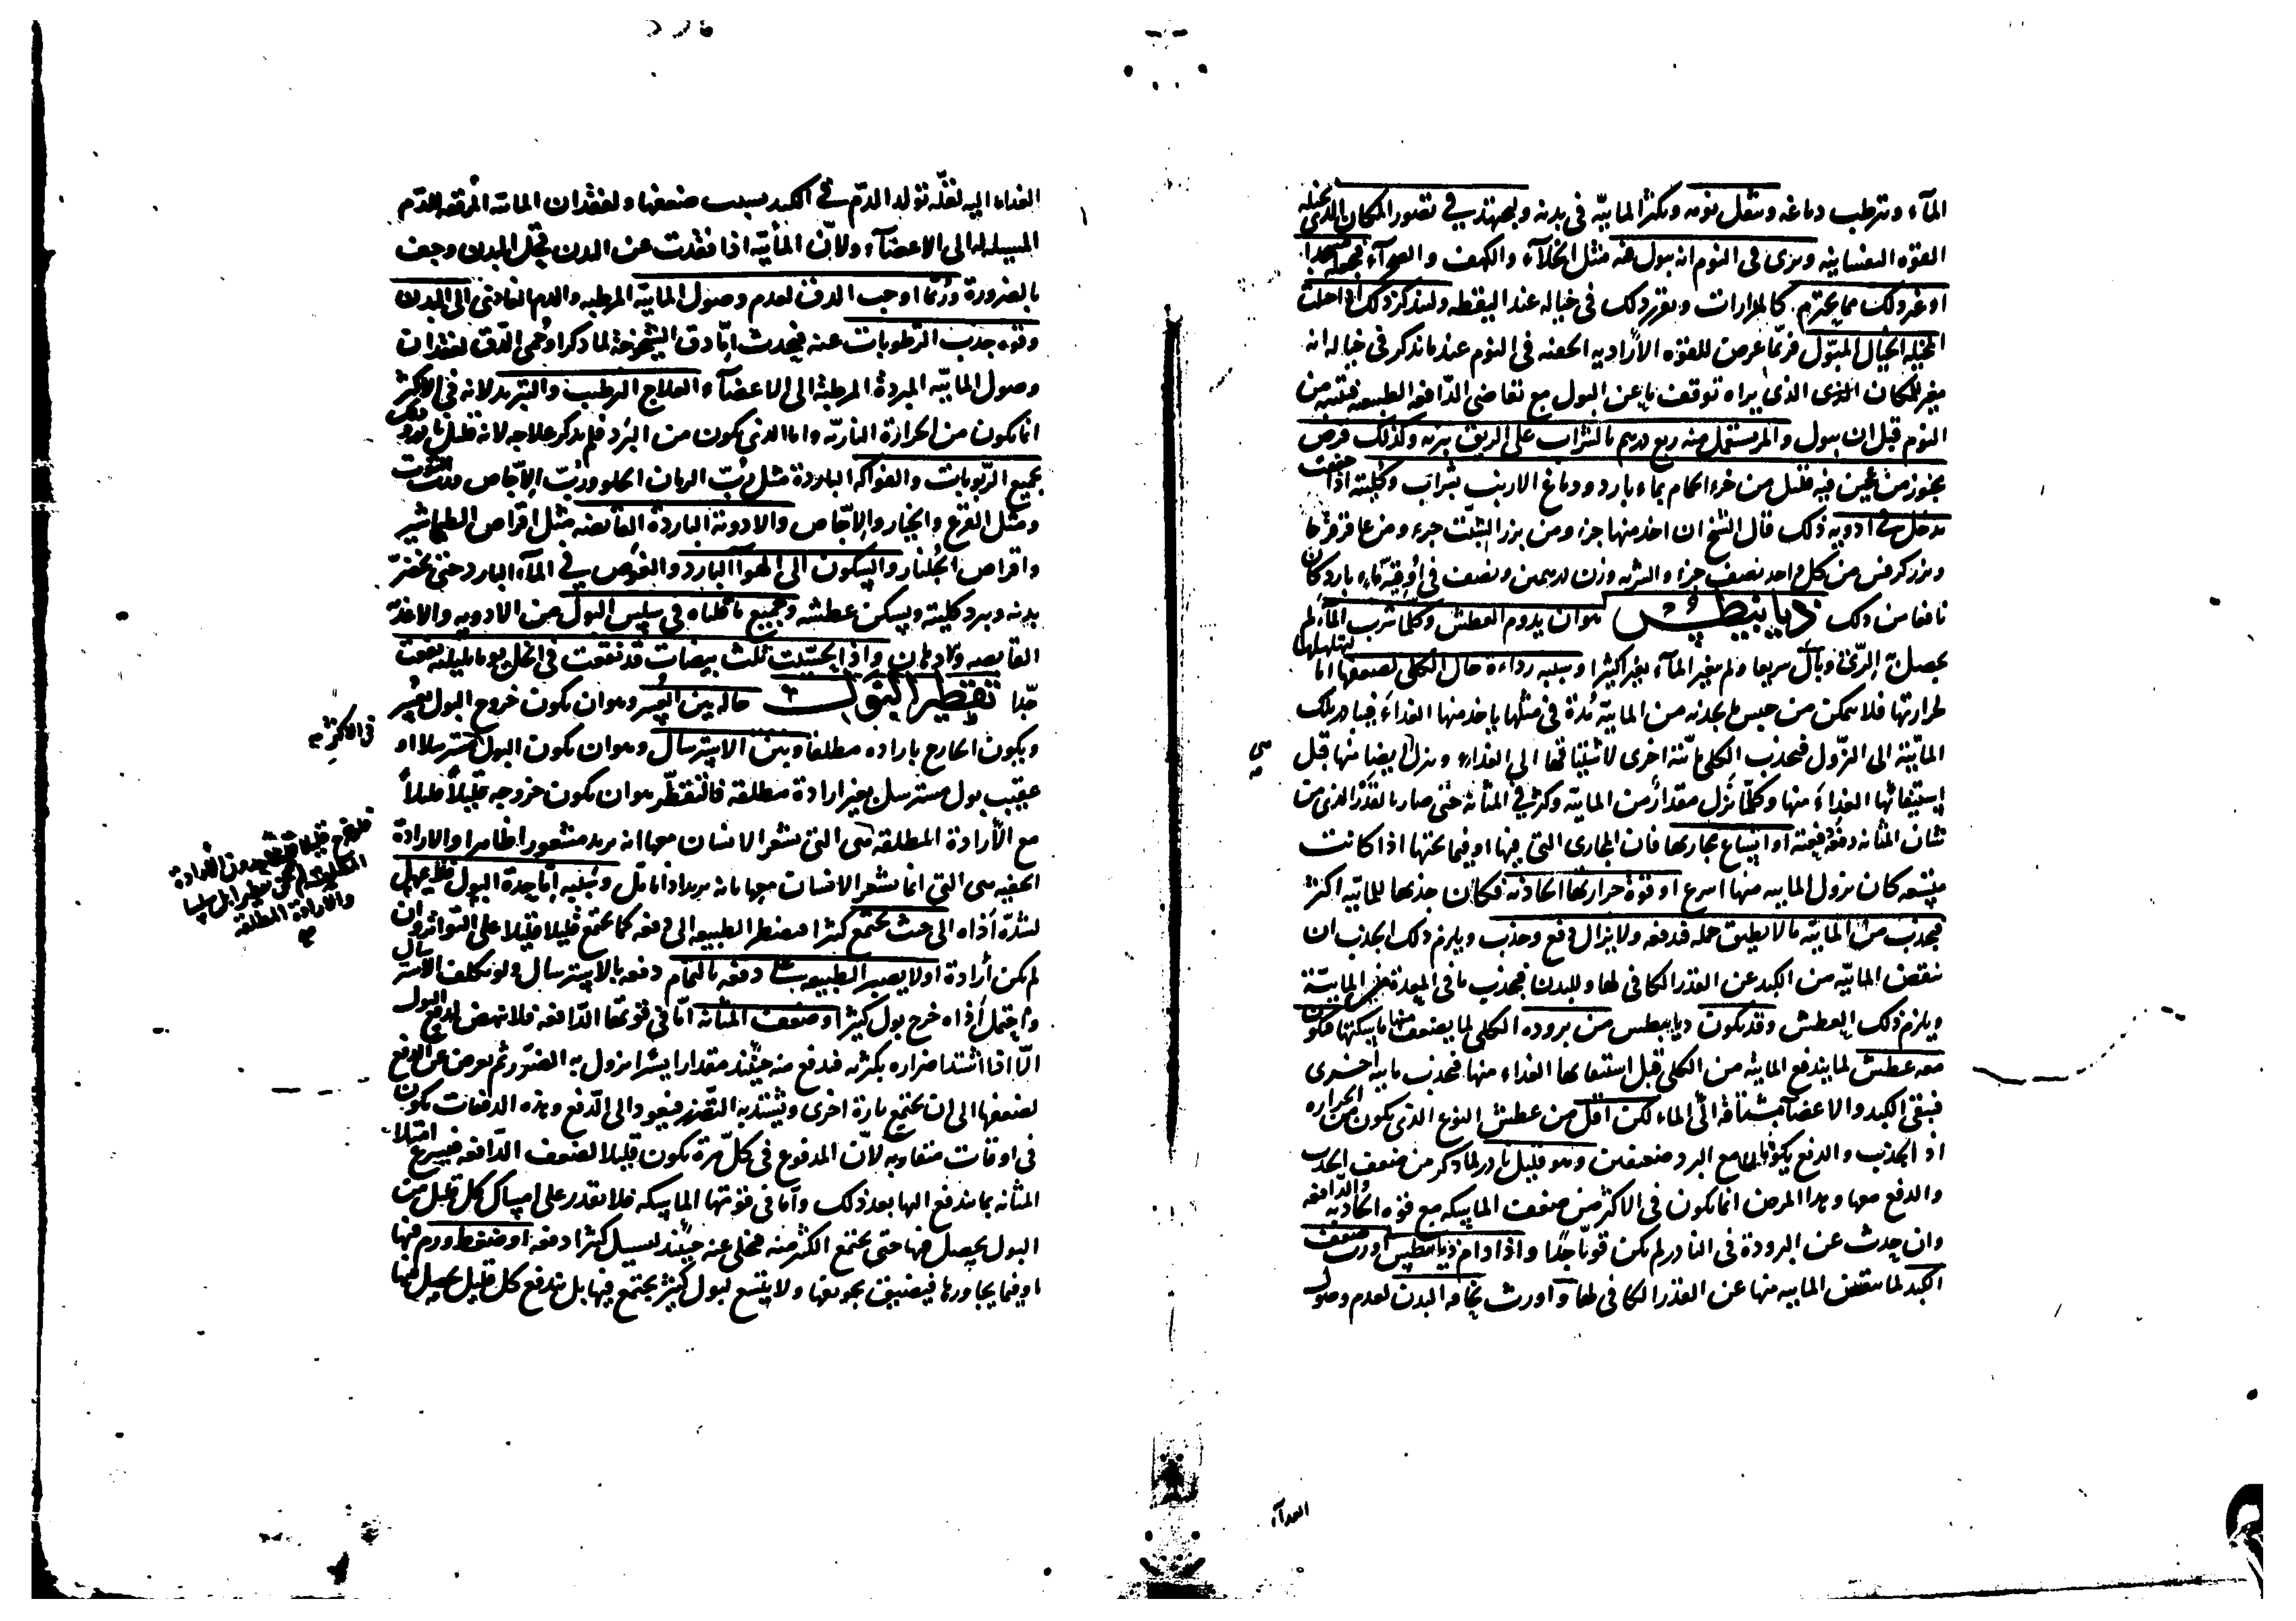 المآء وترطب دماغه وثقل نومه وتكثر المائيّة في بدنه ويجتهد في تصور المكان الذى تخيله
القوّه النفسانيه ويرى في النوم انه يبول فى مثل الخلآء والكهف والصحرآء
او غير ذلك مما يحترم كالمزارات ويقرر ذلك في خياله عند اليقظه وليتذكر ذلك اذا خلت
المخيله الخيال المبوّل فربّما عرض للقوّه الأراديه الخفيه في النوم عند ما تذكر في خياله انه
بغير المكان الذى يراه توقف ما عن البول مع تقاضى الدّافعه الطبيعيه فينتبه من
النوم قبل ان يبول والمر يستعمل منه ربع درهم بالشراب على الريق وكذلك قرص
يخبز من عجين فيه قليل من خرء الحمام بماء بارد ودماغ الارنب بشراب وكليته اذا جففت
تدخل في ادويه ذلك قال الشيخ ان اخذ منها جزء ومن بزر الشبّت جزء ومن عاقرقرحا
وبزر كرفس من كل واحد نصف جزء والشربه وزن درهمين ونصف فى أوقيّة ماء بارد كان
نافعا من ذلك ديابيطس هو ان يدوم العطش وكلّما شرب المآء لم
يحصل به الرّى وبال سريعا ولم يتغير المآء تغيرا كثيرا وسببه رداءة حال الكلى لضعفها اما
لحرارتها فلا تتمكن من حبس ما يجذبه من المائيّة مدة في مثلها ياخذ منها الغذاء فيبادر تلك
المائيّة الى النزول فيجذب الكلى مائيّة اخرى لاشتياقها الى الغذاء وينزل ايضا منها قبل
استيفائها الغذاء منها وكلّما نزل مقدار من المائيّة وكثر في المثانة حتى صار بالقدر الذى من
شان المثانه دفعه دفعته او اتساع مجاريها فان المجارى التى فيها او فيما تحتها اذا كانت
متّسعه كان نزول المائيه منها اسرع او قوّة حرارتها الجاذبة فكان جذبها للمائيّه اكثر
فيجذب من المائيّه ما لا يطيق حمله فدفعه ولا يزال دفع وجذب ويلزم ذلك الجذب ان
ينقص المائيّه من الكبد عن القدر الكافى لها وللبدن فيجذب ما فى المعدة من المائيّة
ويلزم ذلك العطش وقد يكون ديابيطس من بروده الكلى لما يضعف منها ماسكتها فيكون
معه عطش لما يندفع المائيّه من الكلى قبل استيفائها الغذاء منها فيجذب مائيه اخرى
فيبقى الكبد والاعضآء مشتاقة الى الماء لكن اقل من عطش النوع الذى يكون من الحراره
اذ الجذب والدفع يكونان مع البرد ضعيفين وهو قليل نادر لما ذكر من ضعف الجذب
والدفع معها وهذا المرض انما يكون فى الاكثر من ضعف الماسكه مع قوّه الجاذبه والدّافعه
وان حدث عن البرودة في النادر لم يكن قويّا جدًا واذا دام ديابيطس اورث ضعف
الكبد لما ينقص المائيه منها عن القدر الكافى لها واورث نحافه البدن لعدم وصول
الغدآء
الغذاء اليه لقلّة تولد الدّم في الكبد بسبب ضعفها ولفقدان المائيه المرققه للدّم
المسيله له الى الاعضآء ولانّ المائيّه اذا فقدت عن البدن قحل البدن وجف
بالضرورة وربّما اوجب الدق لعدم وصول المائيّه المرطبه والدم الغاذى الى البدن
وقوه جذب الرطوبات عنه فيحدث امّا دق الشيخوخة لما ذكر او حمى الدّق لفقدان
وصول المائيّه المبردة المرطبة الى الاعضآء والعلاج الترطيب والتبريد لانه فى الاكثر
انما يكون من الحرارة الناريّه واما الذى يكون من البرد فلم يذكر علاجه لانه قليل نادر وذلك
بجميع الرّبوبات والفواكه الباردة مثل رُبّ الرمان الحلو وربّ الاجّاص وربّ التوت
ومثل القرع والخيار والاجّاص والادوية الباردة القابضه مثل اقراص الطباشير
واقراص الجلنار والسكون الى الهوآ البارد والغوص في المآء البارد حتى يخضرّ
بدنه ويبرد كليته ويسكن عطشه وجميع ما قلناه فى سلس البول من الادويه والاغذيّة
القابضه والادهان واذا تحسّيت ثلث بيضات قد نقعت فى الخل يوما بليلته نفعت
جدّا تقطير البول حاله بين العسر وهو ان يكون خروج البول بعُسر
ويكون الخارج باراده مطلقا وبين الاسترسال وهو ان يكون البول مسترسلا او
عقيب بول مسترسل بغير ارادة مطلقه فالتقطّر هو ان يكون خروجه قليلاً قليلاً
مع الأرادة المطلقه هى التى يشعر الانسان معها انه مريد مشعورا ظاهرا والارادة
الخفيه هى التى انما يشعر الانسان معها بانه مريد اذا تامّل وسببه اما حِدة البول فلا يمهل
لشدّة أذاه الى حيث يجتمع كثيرا فيضطر الطبيعه الى دفعه كما يجتمع قليلا قليلا على التواتر وان
لم يكن أرادة اولا يصير الطبيعه على دفعه بالتمام دفعه بالاسترسال ولو تكلف الاسترسال
واحتمل أذاه خرج بول كثير او ضعف المثانه امّا فى قوتها الدّافعه فلا تنهض لدفع البول
الّا اذا اشتدّ اضراره بكثرته فدفع منه حينئذ مقدارا يسيرا يزول به الضرر ثم يعرض عن الدفع
لضعفها الى ان يجتمع تارة اخرى ويشتد به التضرّر فيعود الى الدّفع وهذه الدفعات يكون
فى اوقات متقاربه لانّ المدفوع فى كلّ مرة يكون قليلا لضعف الدّافعه فيسرع امتلا
المثانه بما يندفع اليها بعد ذلك واما فى قوتها الماسكه فلا تقدر على امساك كل قليل من
البول يحصل فيها حتى يجتمع الكثير منه فتخلى عنه حينئذ ليسيل كثيرا دفعه او ضغط ورم فيها
او فيما يجاورها فيضيق تجويفها ولا يتّسع لبول كثير يجتمع فيها بل يندفع كل قليل يحصل فيها
فى الاكثر
والارادة المطلقه